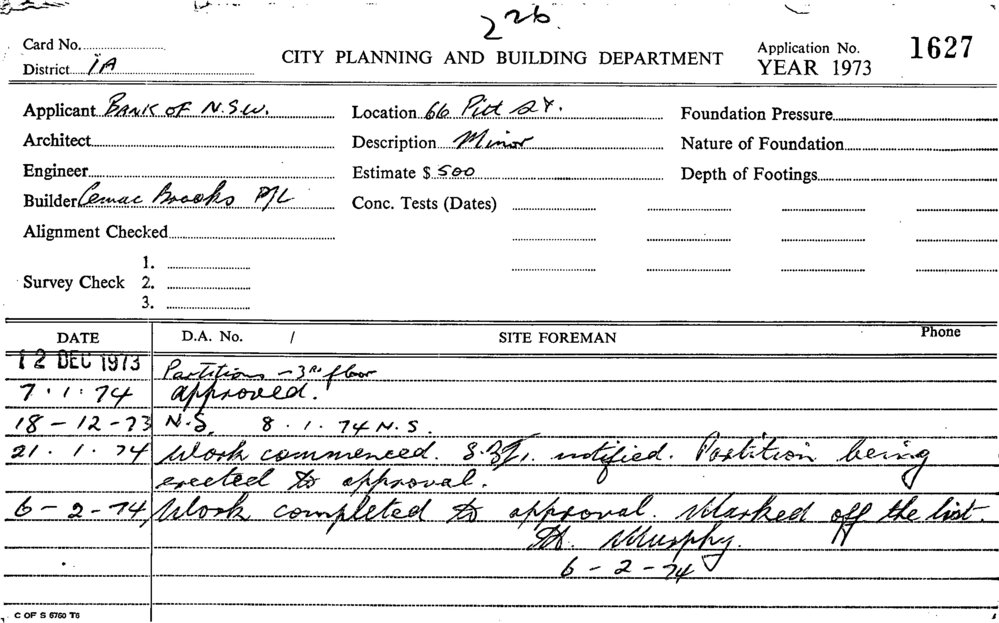 226
Card No.
District 1A
CITY PLANNING AND BUILDING DEPARTMENT
Application No. 1627
YEAR 1973
Applicant BANK OF N.S.W.
Location 66 Pitt St.
Foundation Pressure
Architect
Description Minor
Nature of Foundation
Engineer
Estimate $ 500
Depth of Footings
Builder Cemac Brooks P/L
Conc. Tests (Dates)
Alignment Checked
Survey Check
1.
2.
3.
DATE D.A. No. / SITE FOREMAN Phone
12 DEC 1973 Partitions - 3rd floor
7.1.74 approved.
18-12-73 N.S. 8.1.74 N.S.
21.1.74 Work commenced. notified. Partition being
erected to approval.
6-2-74 Work completed to approval. Marked off the list.
Murphy.
6-2-74
C OF S 6760 T6